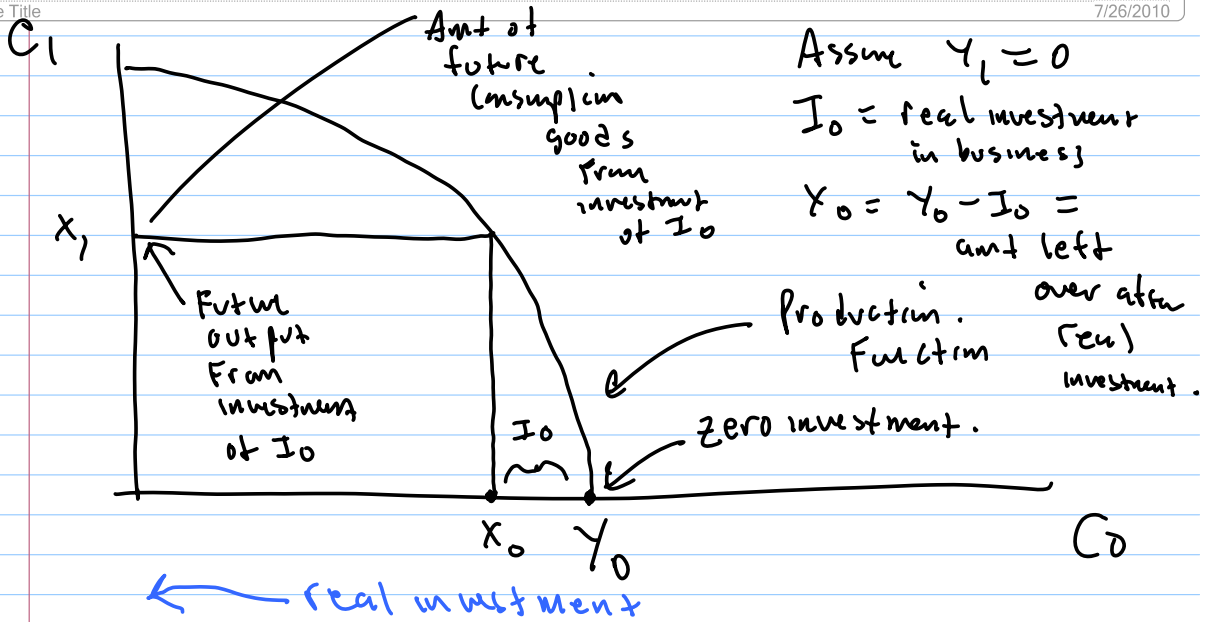 e Title
7/26/2010
C1
Amt of
future
Consumption
goods
From
investment
of I0
Assume Y1 = 0
I0 = real investment
in business
X0 = Y0 - I0 =
amt left
over after
real
investment.
X1
Future
output
From
investment
of I0
Production.
Function
I0
zero investment.
X0
Y0
C0
real investment